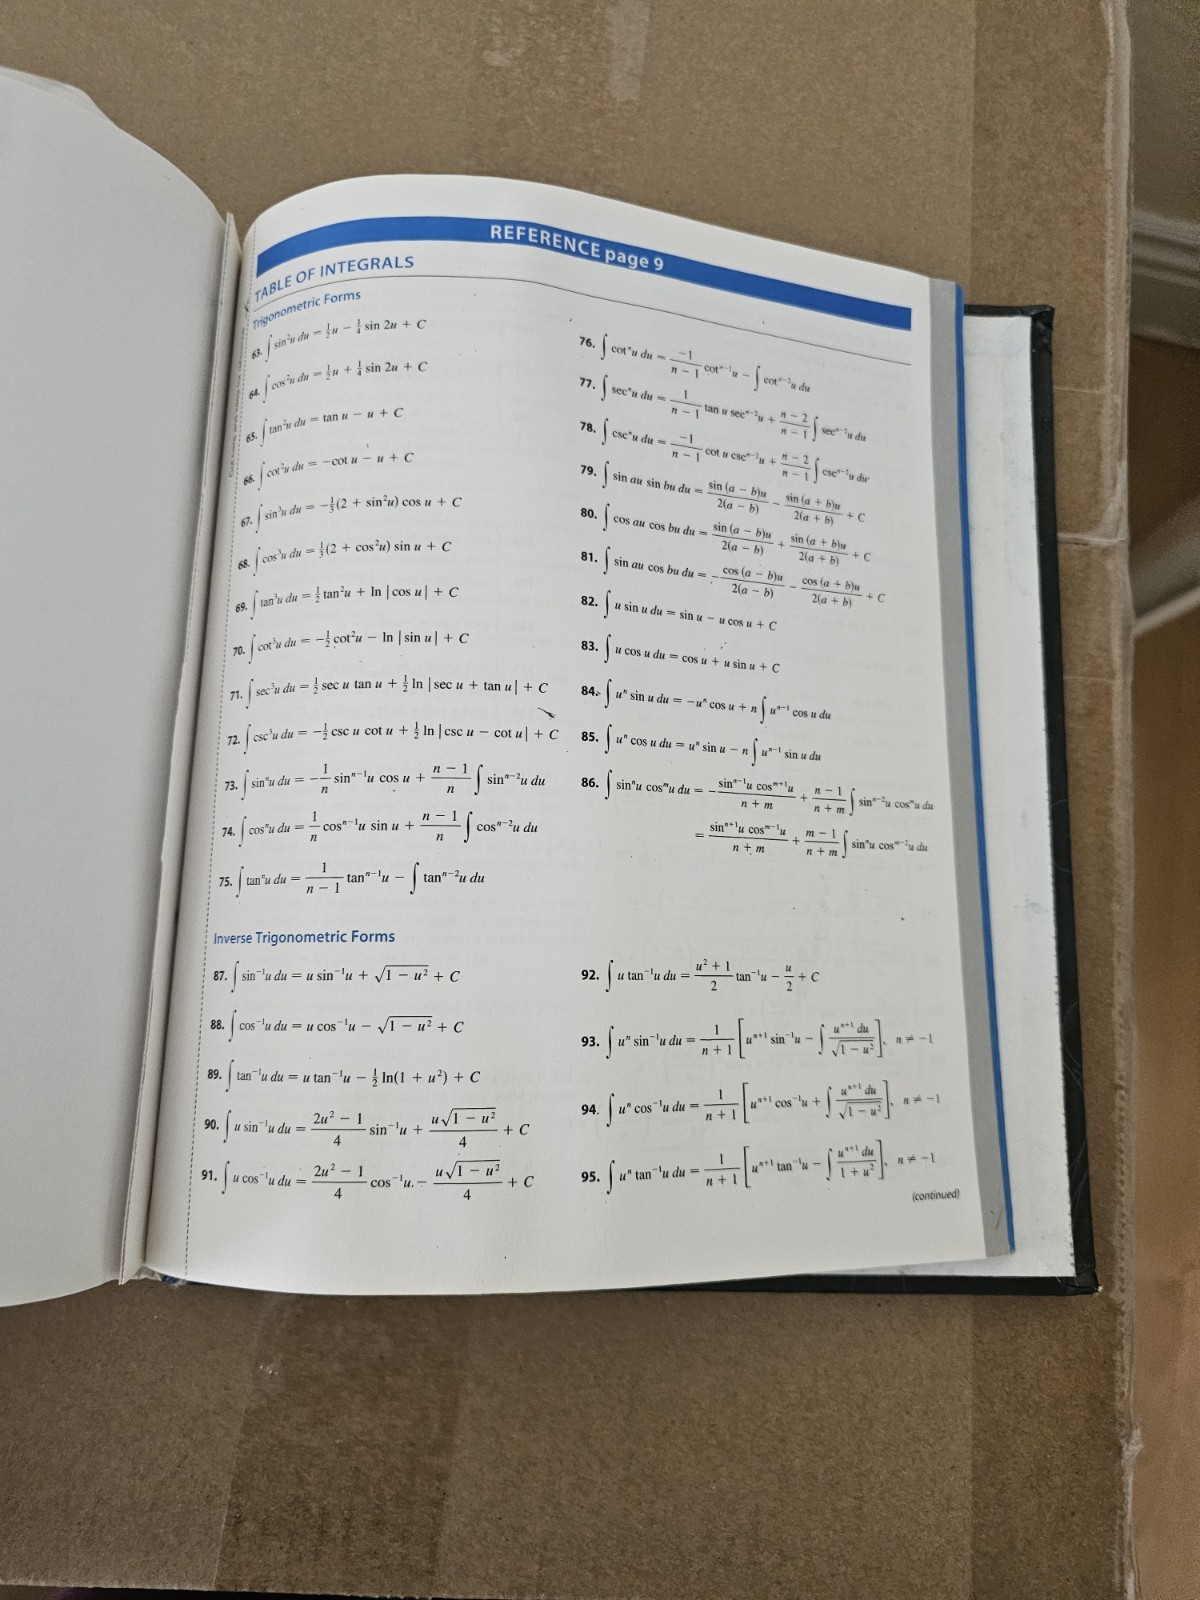 REFERENCE page 9
TABLE OF INTEGRALS
Trigonometric Forms
63. ∫ sin²u du = ½u − ¼ sin 2u + C
64. ∫ cos²u du = ½u + ¼ sin 2u + C
65. ∫ tan²u du = tan u − u + C
66. ∫ cot²u du = −cot u − u + C
67. ∫ sin³u du = −⅓(2 + sin²u) cos u + C
68. ∫ cos³u du = ⅓(2 + cos²u) sin u + C
69. ∫ tan³u du = ½ tan²u + ln |cos u| + C
70. ∫ cot³u du = −½ cot²u − ln |sin u| + C
71. ∫ sec³u du = ½ sec u tan u + ½ ln |sec u + tan u| + C
72. ∫ csc³u du = −½ csc u cot u + ½ ln |csc u − cot u| + C
73. ∫ sinⁿu du = −1/n sinⁿ⁻¹u cos u + (n − 1)/n ∫ sinⁿ⁻²u du
74. ∫ cosⁿu du = 1/n cosⁿ⁻¹u sin u + (n − 1)/n ∫ cosⁿ⁻²u du
75. ∫ tanⁿu du = 1/(n − 1) tanⁿ⁻¹u − ∫ tanⁿ⁻²u du
76. ∫ cotⁿu du = −1/(n − 1) cotⁿ⁻¹u − ∫ cotⁿ⁻²u du
77. ∫ secⁿu du = 1/(n − 1) tan u secⁿ⁻²u + (n − 2)/(n − 1) ∫ secⁿ⁻²u du
78. ∫ cscⁿu du = −1/(n − 1) cot u cscⁿ⁻²u + (n − 2)/(n − 1) ∫ cscⁿ⁻²u du
79. ∫ sin au sin bu du = sin (a − b)u/2(a − b) − sin (a + b)u/2(a + b) + C
80. ∫ cos au cos bu du = sin (a − b)u/2(a − b) + sin (a + b)u/2(a + b) + C
81. ∫ sin au cos bu du = −cos (a − b)u/2(a − b) − cos (a + b)u/2(a + b) + C
82. ∫ u sin u du = sin u − u cos u + C
83. ∫ u cos u du = cos u + u sin u + C
84. ∫ uⁿ sin u du = −uⁿ cos u + n ∫ uⁿ⁻¹ cos u du
85. ∫ uⁿ cos u du = uⁿ sin u − n ∫ uⁿ⁻¹ sin u du
86. ∫ sinⁿu cosᵐu du = −sinⁿ⁻¹u cosᵐ⁺¹u/(n + m) + (n − 1)/(n + m) ∫ sinⁿ⁻²u cosᵐu du
= sinⁿ⁺¹u cosᵐ⁻¹u/(n + m) + (m − 1)/(n + m) ∫ sinⁿu cosᵐ⁻²u du
Inverse Trigonometric Forms
87. ∫ sin⁻¹u du = u sin⁻¹u + √(1 − u²) + C
88. ∫ cos⁻¹u du = u cos⁻¹u − √(1 − u²) + C
89. ∫ tan⁻¹u du = u tan⁻¹u − ½ ln(1 + u²) + C
90. ∫ u sin⁻¹u du = (2u² − 1)/4 sin⁻¹u + u√(1 − u²)/4 + C
91. ∫ u cos⁻¹u du = (2u² − 1)/4 cos⁻¹u − u√(1 − u²)/4 + C
92. ∫ u tan⁻¹u du = (u² + 1)/2 tan⁻¹u − u/2 + C
93. ∫ uⁿ sin⁻¹u du = 1/(n + 1) [uⁿ⁺¹ sin⁻¹u − ∫ uⁿ⁺¹ du/√(1 − u²)], n ≠ −1
94. ∫ uⁿ cos⁻¹u du = 1/(n + 1) [uⁿ⁺¹ cos⁻¹u + ∫ uⁿ⁺¹ du/√(1 − u²)], n ≠ −1
95. ∫ uⁿ tan⁻¹u du = 1/(n + 1) [uⁿ⁺¹ tan⁻¹u − ∫ uⁿ⁺¹ du/(1 + u²)], n ≠ −1
(continued)